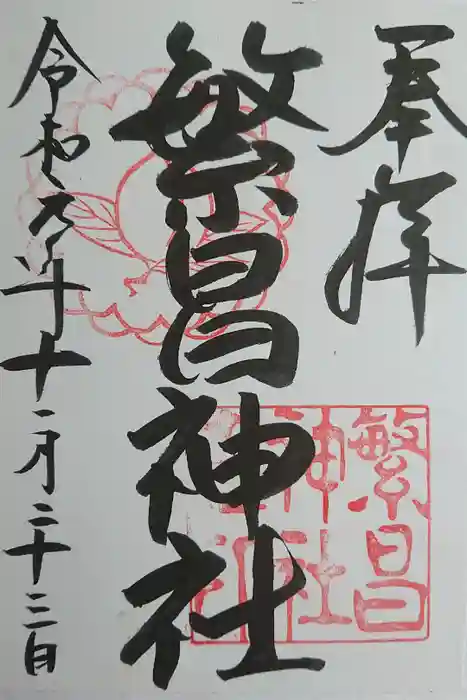 奉拝
繁昌神社
繁昌
神社
令和元年十二月二十三日